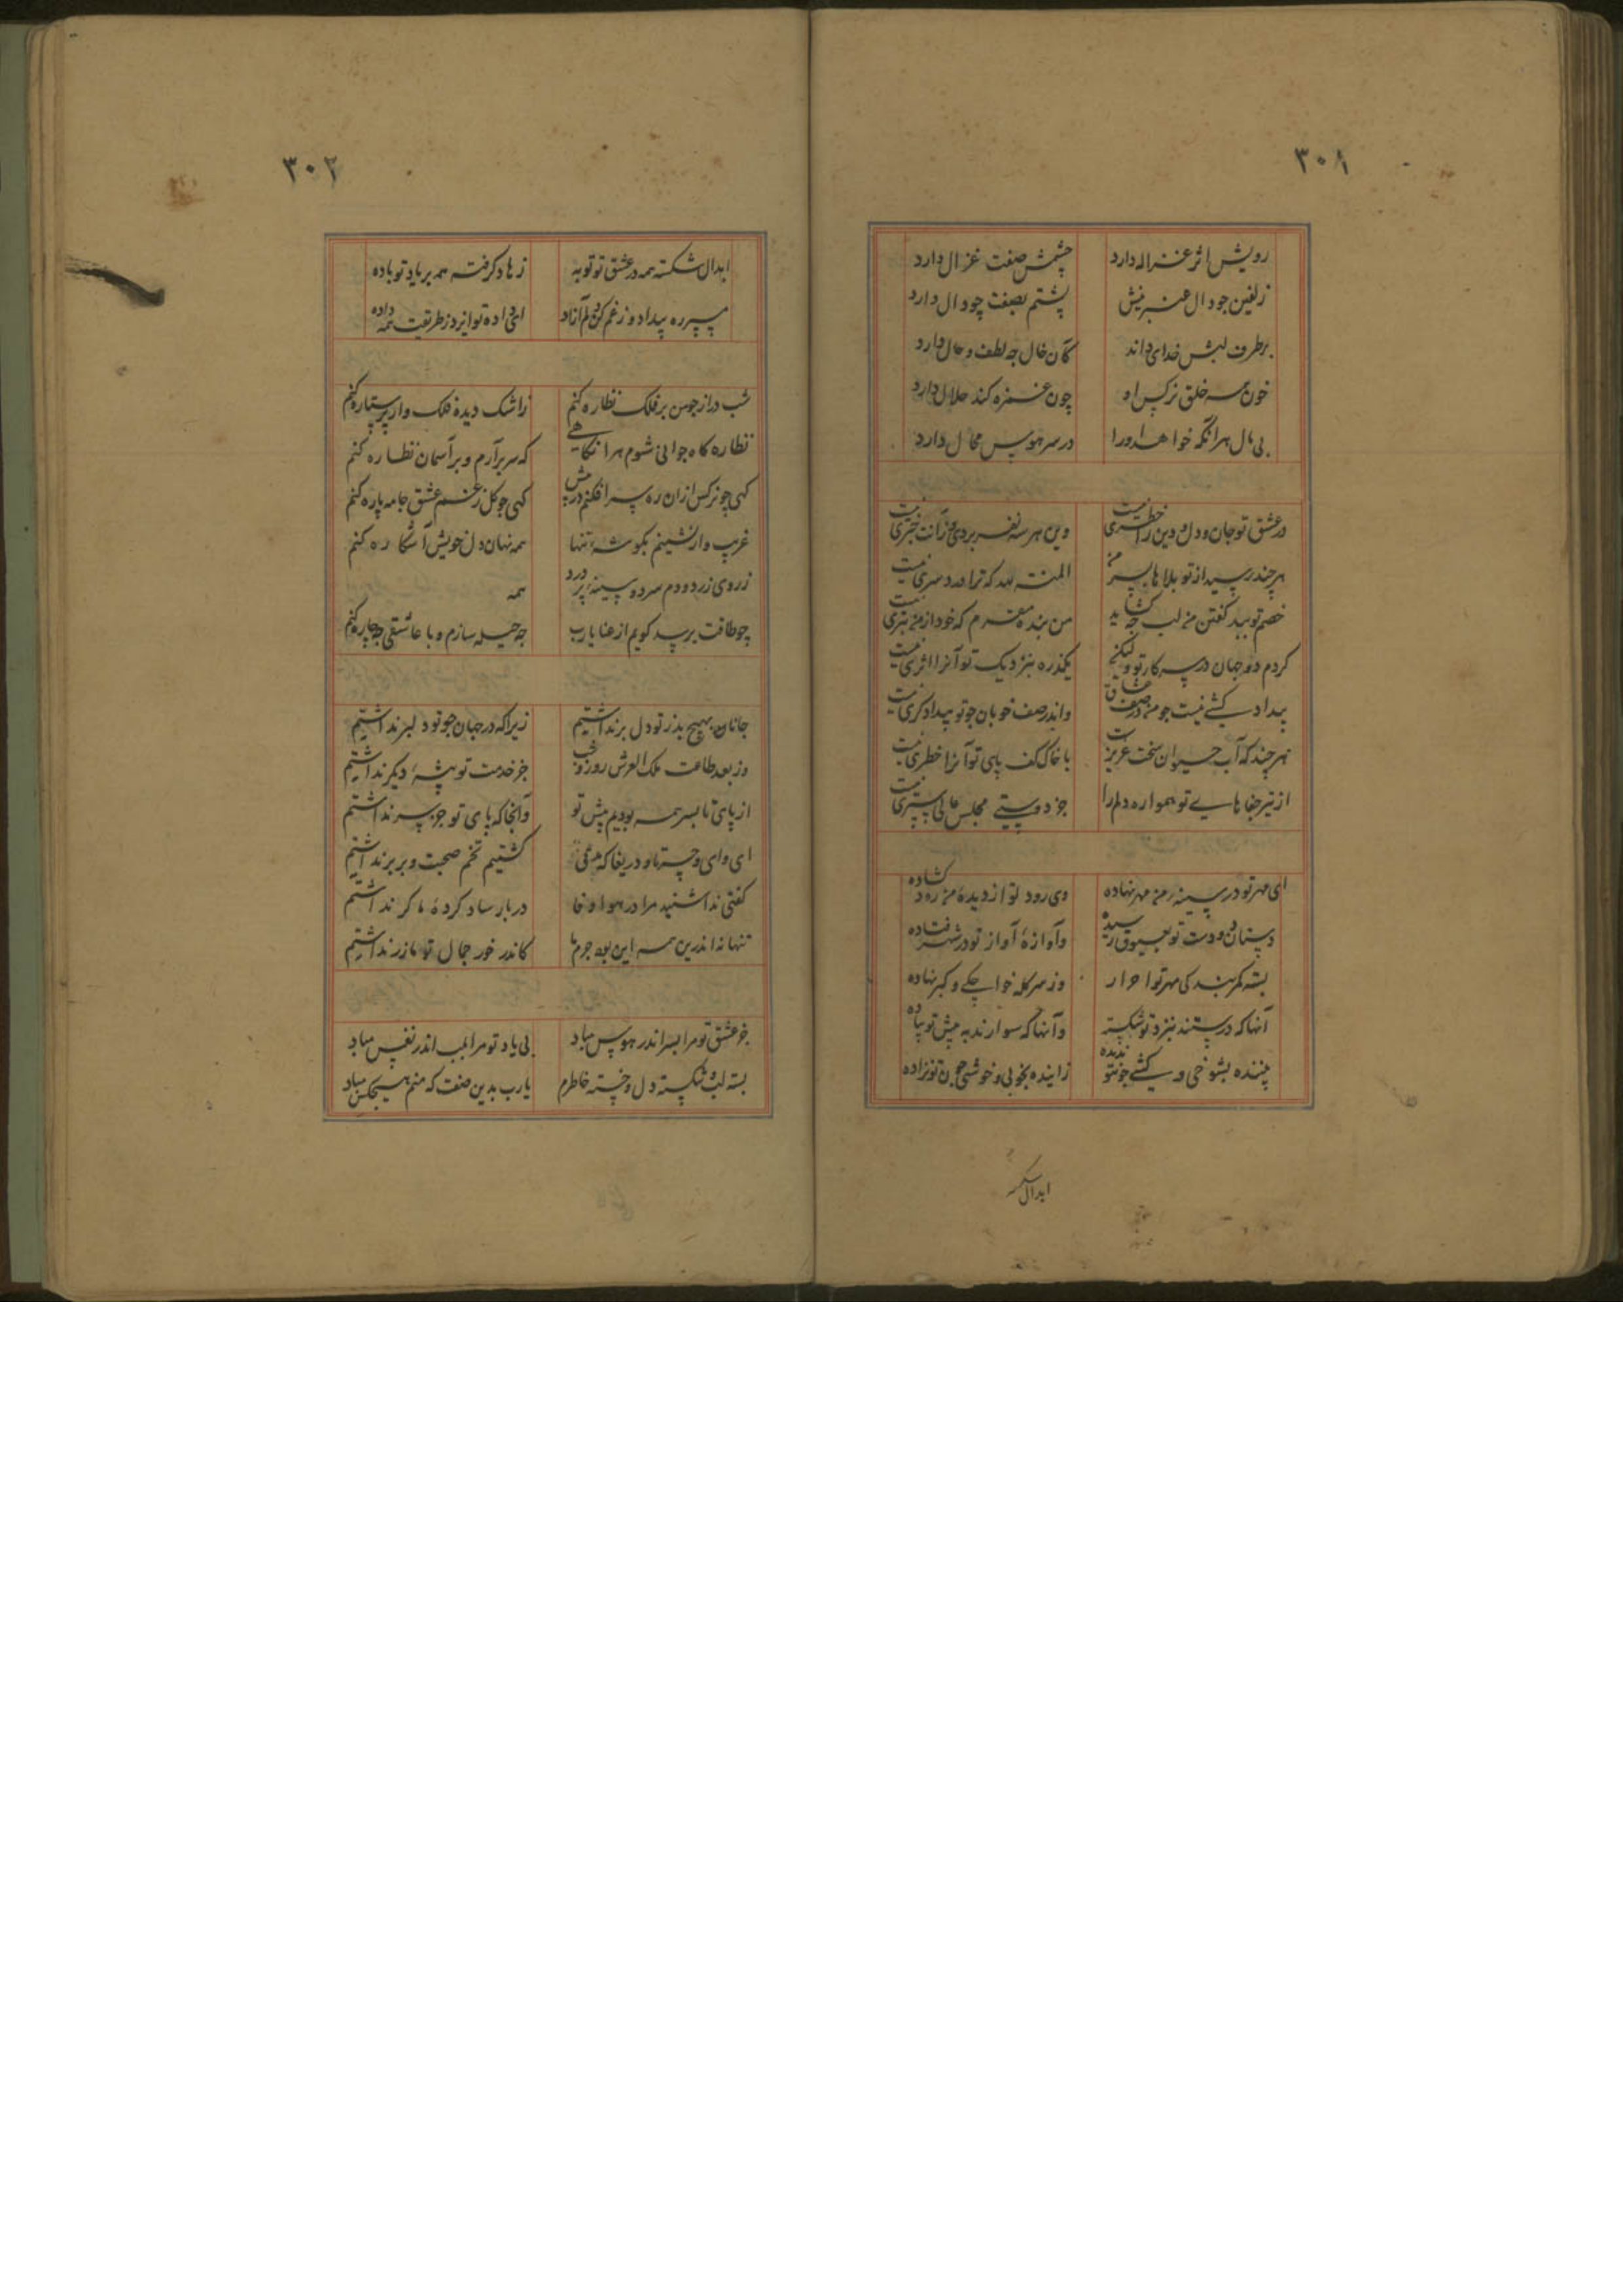 ٣٠١
رویش اثر غزاله دارد چشمش صفت غزال دارد
زلفین جو دال عنبرینش پشتم بصفت چو دال دارد
برطرف لبش خدای داند کان خال چه لطف و حال دارد
خون همه خلق نرکس او چون غمزه کند حلال دارد
بی مال هر انکه خواهد او را در سر هوس محال دارد
در عشق تو جان و دل و دین را خطری نیست وین هر سه نفر بر دی و زانت خبری نیست
هر چند رسید از تو بلاها بسر من المنت لله که ترا درد سری نیست
خصم تو ببد کفتن من لب چه کشاید من بنده مقرم که خود از من بتری نیست
کردم دو جهان در سر کار تو ولیکن یکذره بنزدیک تو آنرا اثری نیست
بیداد کشی نیست جو من در صف عشاق واندر صف خوبان جو تو بیداد کری نیست
هر چند که آب حیوان سخت عزیز است با خاک کف پای تو آنرا خطری نیست
از تیر جفاهای تو همواره دلم را جز دوستی مجلس عالی سپری نیست
ای مهر تو در سینه من مهر نهاده وی رود تو از دیده من رود کشاده
دستان دو دست تو بعیوق رسیده وآوازهٔ آواز تو در شهر فتاده
بسته کمر بندکی مهر تو احرار وز سر کله خواجکی و کبر نهاده
آنها که درستند بنزد تو شکسته وآنها که سوارند به پیش تو پیاده
بیننده بشوخی و کشی جون تو ندیده زاینده بخوبی و خوشی جون تو نزاده
ابدال شکسته
٣٠٢
ابدال شکسته همه در عشق تو توبه زهاد کرفته همه بر یاد تو باده
بی ره بیداد و زغم کن دلم آزاد ای داده تو ایزد ز ظرافت همه داده
شب دراز جو من بر فلک نظاره کنم ز اشک دیده فلک وار پر ستاره کنم
نظاره کاه جوانی شوم هر آنکاهی که سر برآرم و بر آسمان نظاره کنم
کهی چو نرکس ازان ره سر افکنم در پیش کهی جو کل ز غم عشق جامه پاره کنم
غریب وار نشینم بکوشهٔ تنها همه نهان دل خویش آشکاره کنم
ز روی زرد و دم سرد و سینهٔ پر درد همه
چو طاقت برسد کویم از عنا یارب چه حیله سازم و با عاشقی چه چاره کنم
جانان بهیچ بد ز تو دل بر نداشتیم زیرا که در جهان جو تو دلبر نداشتیم
وز بعد طاعت ملک العرش روز و شب جز خدمت تو پیشهٔ دیکر نداشتیم
از پای تا بسر همه بودیم پیش تو وآنجا که پای تو جز سر نداشتیم
ای وای و حسرتا و دریغا که مدتی کشتیم تخم صحبت و بر بر نداشتیم
کفتی نداشتید مرا در هوا وفا
تنها نه اندرین همه این بود جرم ما کاندر خور جمال تو ما زر نداشتیم
جز عشق تو مرا بسر اندر هوس مباد بی یاد تو مرا بلب اندر نفس مباد
بسته لب و شکسته دل و خسته خاطرم یارب بدین صفت که منم هیچکس مباد